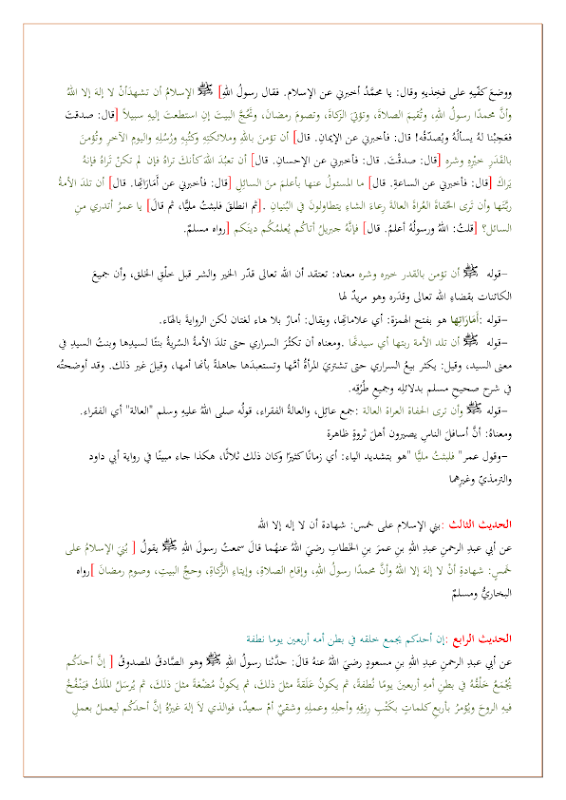 ووضعَ كفَّيهِ على فخِذيهِ وقال: يا محمَّدُ أخبرني عن الإسلام. فقال رسولُ اللهِ] ﷺ الإسلامُ أن تشهدَأنْ لا إلهَ إلا اللهُ
وأنَّ محمدًا رسولُ اللهِ، وتُقيمَ الصلاةَ، وتؤتيَ الزكاةَ، وتصومَ رمضانَ، وتَحُجَّ البيتَ إنِ استطعتَ إليهِ سبيلاً [قال: صدقتَ
فعَجِبْنا لهُ يسألُهُ ويُصدِّقُه! قال: فأخبرني عن الإيمانِ. قال] أن تؤمنَ باللهِ وملائكتِهِ وكتُبِهِ ورُسُلِهِ واليومِ الآخرِ وتُؤمنَ
بالقَدَرِ خيْرِهِ وشرهِ [قال: صدقْتَ. قال: فأخبرني عن الإحسانِ. قال] أن تعبُدَ اللهَ كأنكَ تراهُ فإن لم تكنْ تَراهُ فإنهُ
يَراكَ [قال: فأخبرني عن الساعةِ. قال] ما المسئولُ عنها بأعلمَ منَ السائلِ [قال: فأخبرني عن أمَارَاتِها. قال] أن تلدَ الأمةُ
ربَّتها وأن تَرى الحفاةَ العُراةَ العالةَ رِعاءَ الشاءِ يتطاولونَ في البُنيانِ .[ثم انطلقَ فلبثتُ مليًّا، ثم قالَ] يا عمرُ أتدري منِ
السائل؟ [قلتُ: اللهُ ورسولُهُ أعلمُ. قال] فإنَّهُ جبريلُ أتاكُم يُعلمُكُم دينَكم [رواه مسلمٌ.
–قوله ﷺ أن تؤمن بالقدر خيره وشره معناه: تعتقد أن الله تعالى قدّر الخير والشر قبل خلْقِ الخلق، وأن جميعَ
الكائنات بقضاءِ الله تعالى وقدَره وهو مريدٌ لها
–قوله :أمَارَاتِها هو بفتح الهمزة: أي علاماتِها، ويقال: أمارٌ بلا هاء لغتان لكن الروايةَ بالهاء.
–قوله ﷺ أن تلد الأمة ربتها أي سيدتُها .ومعناه أن تكثُرَ السراري حتى تلدَ الأمةُ السُّريةُ بنتًا لسيدِها وبنتُ السيدِ في
معنى السيد، وقيل: يكثر بيعُ السراري حتى تشتريَ المرأةُ أمَّها وتستعبدَها جاهلةً بأنها أمها، وقيلَ غير ذلك. وقد أوضحتُه
في شرح صحيح مسلم بدلائلِه وجميعِ طُرُقِه.
–قوله ﷺ وأن ترى الحفاة العراة العالة :جمع عائِل، والعالةُ الفقراء، قولُه صلى اللهُ عليهِ وسلم "العالة" أي الفقراء.
ومعناهُ: أنَّ أسافلَ الناسِ يصيرون أهلَ ثروةٍ ظاهرة
–وقول عمر" فلبثتُ مليًّا "هو بتشديد الياء: أي زمانًا كثيرًا وكان ذلك ثلاثًا، هكذا جاء مبينًا في رواية أبي داود
والترمذيّ وغيرِهما
الحديث الثالث :بني الإسلام على خمس: شهادة أن لا إله إلا الله
عن أبي عبدِ الرحمنِ عبدِ اللهِ بنِ عمرَ بنِ الخطابِ رضيَ اللهُ عنهُما قالَ سمعتُ رسولَ اللهِ ﷺ يقولُ [ بُنيَ الإسلامُ على
خمسٍ: شهادةِ أنْ لا إلهَ إلا اللهُ وأنَّ محمدًا رسولُ اللهِ، وإقامِ الصلاةِ، وإيتاءِ الزَّكاةِ، وحجِّ البيتِ، وصومِ رمضانَ ]رواه
البخاريُّ ومسلمٌ
الحديث الرابع :إن أحدكم يجمع خلقه في بطن أمه أربعين يوما نطفة
عن أبي عبدِ الرحمنِ عبدِ اللهِ بنِ مسعودٍ رضيَ اللهُ عنهُ قالَ: حدَّثنا رسولُ اللهِ ﷺ وهو الصَّادقُ المصدوقُ [ إنَّ أحدَكُم
يُجْمَعُ خلْقُهُ في بطنِ أمهِ أربعينَ يومًا نُطفةً، ثم يكونُ عَلَقةً مثلَ ذلكَ، ثم يكونُ مُضْغةً مثلَ ذلكَ، ثم يُرسَلُ المَلَكُ فيَنْفُخُ
فيهِ الروحَ ويُؤمرُ بأربعِ كلماتٍ بكَتْبِ رِزقِهِ وأجلِهِ وعملِهِ وشقيٌّ أمْ سعيدٌ، فوالذي لاَ إلهَ غيرُهُ إنَّ أحدَكُم ليعملُ بعملِ